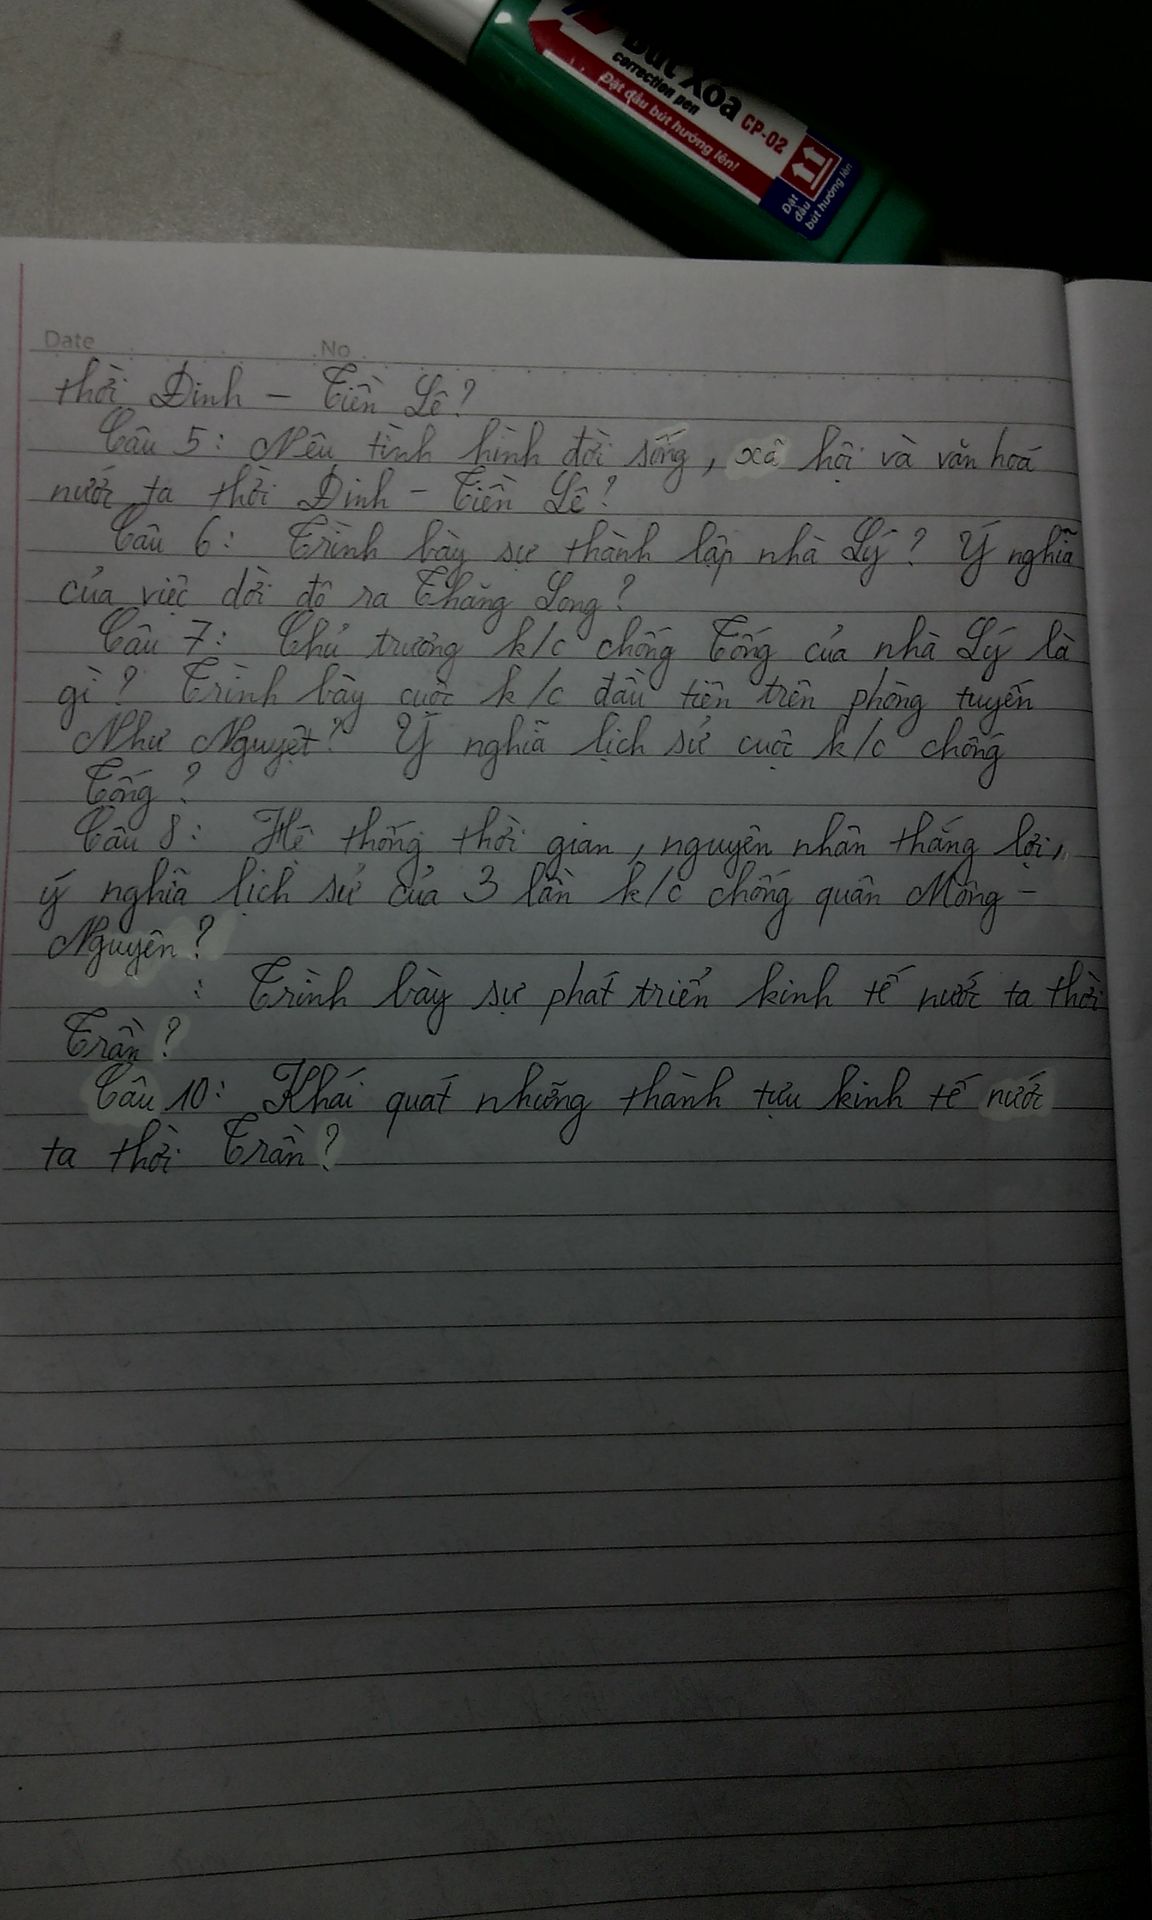 Bút Xóa CP-02
correction pen
Đặt đầu bút hướng lên!
Đặt
đầu
bút hướng lên
Date No
thời Đinh – Tiền Lê?
Câu 5: Nêu tình hình đời sống, xã hội và văn hoá
nước ta thời Đinh – Tiền Lê?
Câu 6: Trình bày sự thành lập nhà Lý? Ý nghĩa
của việc dời đô ra Thăng Long?
Câu 7: Chủ trương k/c chống Tống của nhà Lý là
gì? Trình bày cuộc k/c đầu tiên trên phòng tuyến
Như Nguyệt? Ý nghĩa lịch sử cuộc k/c chống
Tống?
Câu 8: Hệ thống thời gian, nguyên nhân thắng lợi,
ý nghĩa lịch sử của 3 lần k/c chống quân Mông –
Nguyên?
: Trình bày sự phát triển kinh tế nước ta thời
Trần?
Câu 10: Khái quát những thành tựu kinh tế nước
ta thời Trần?